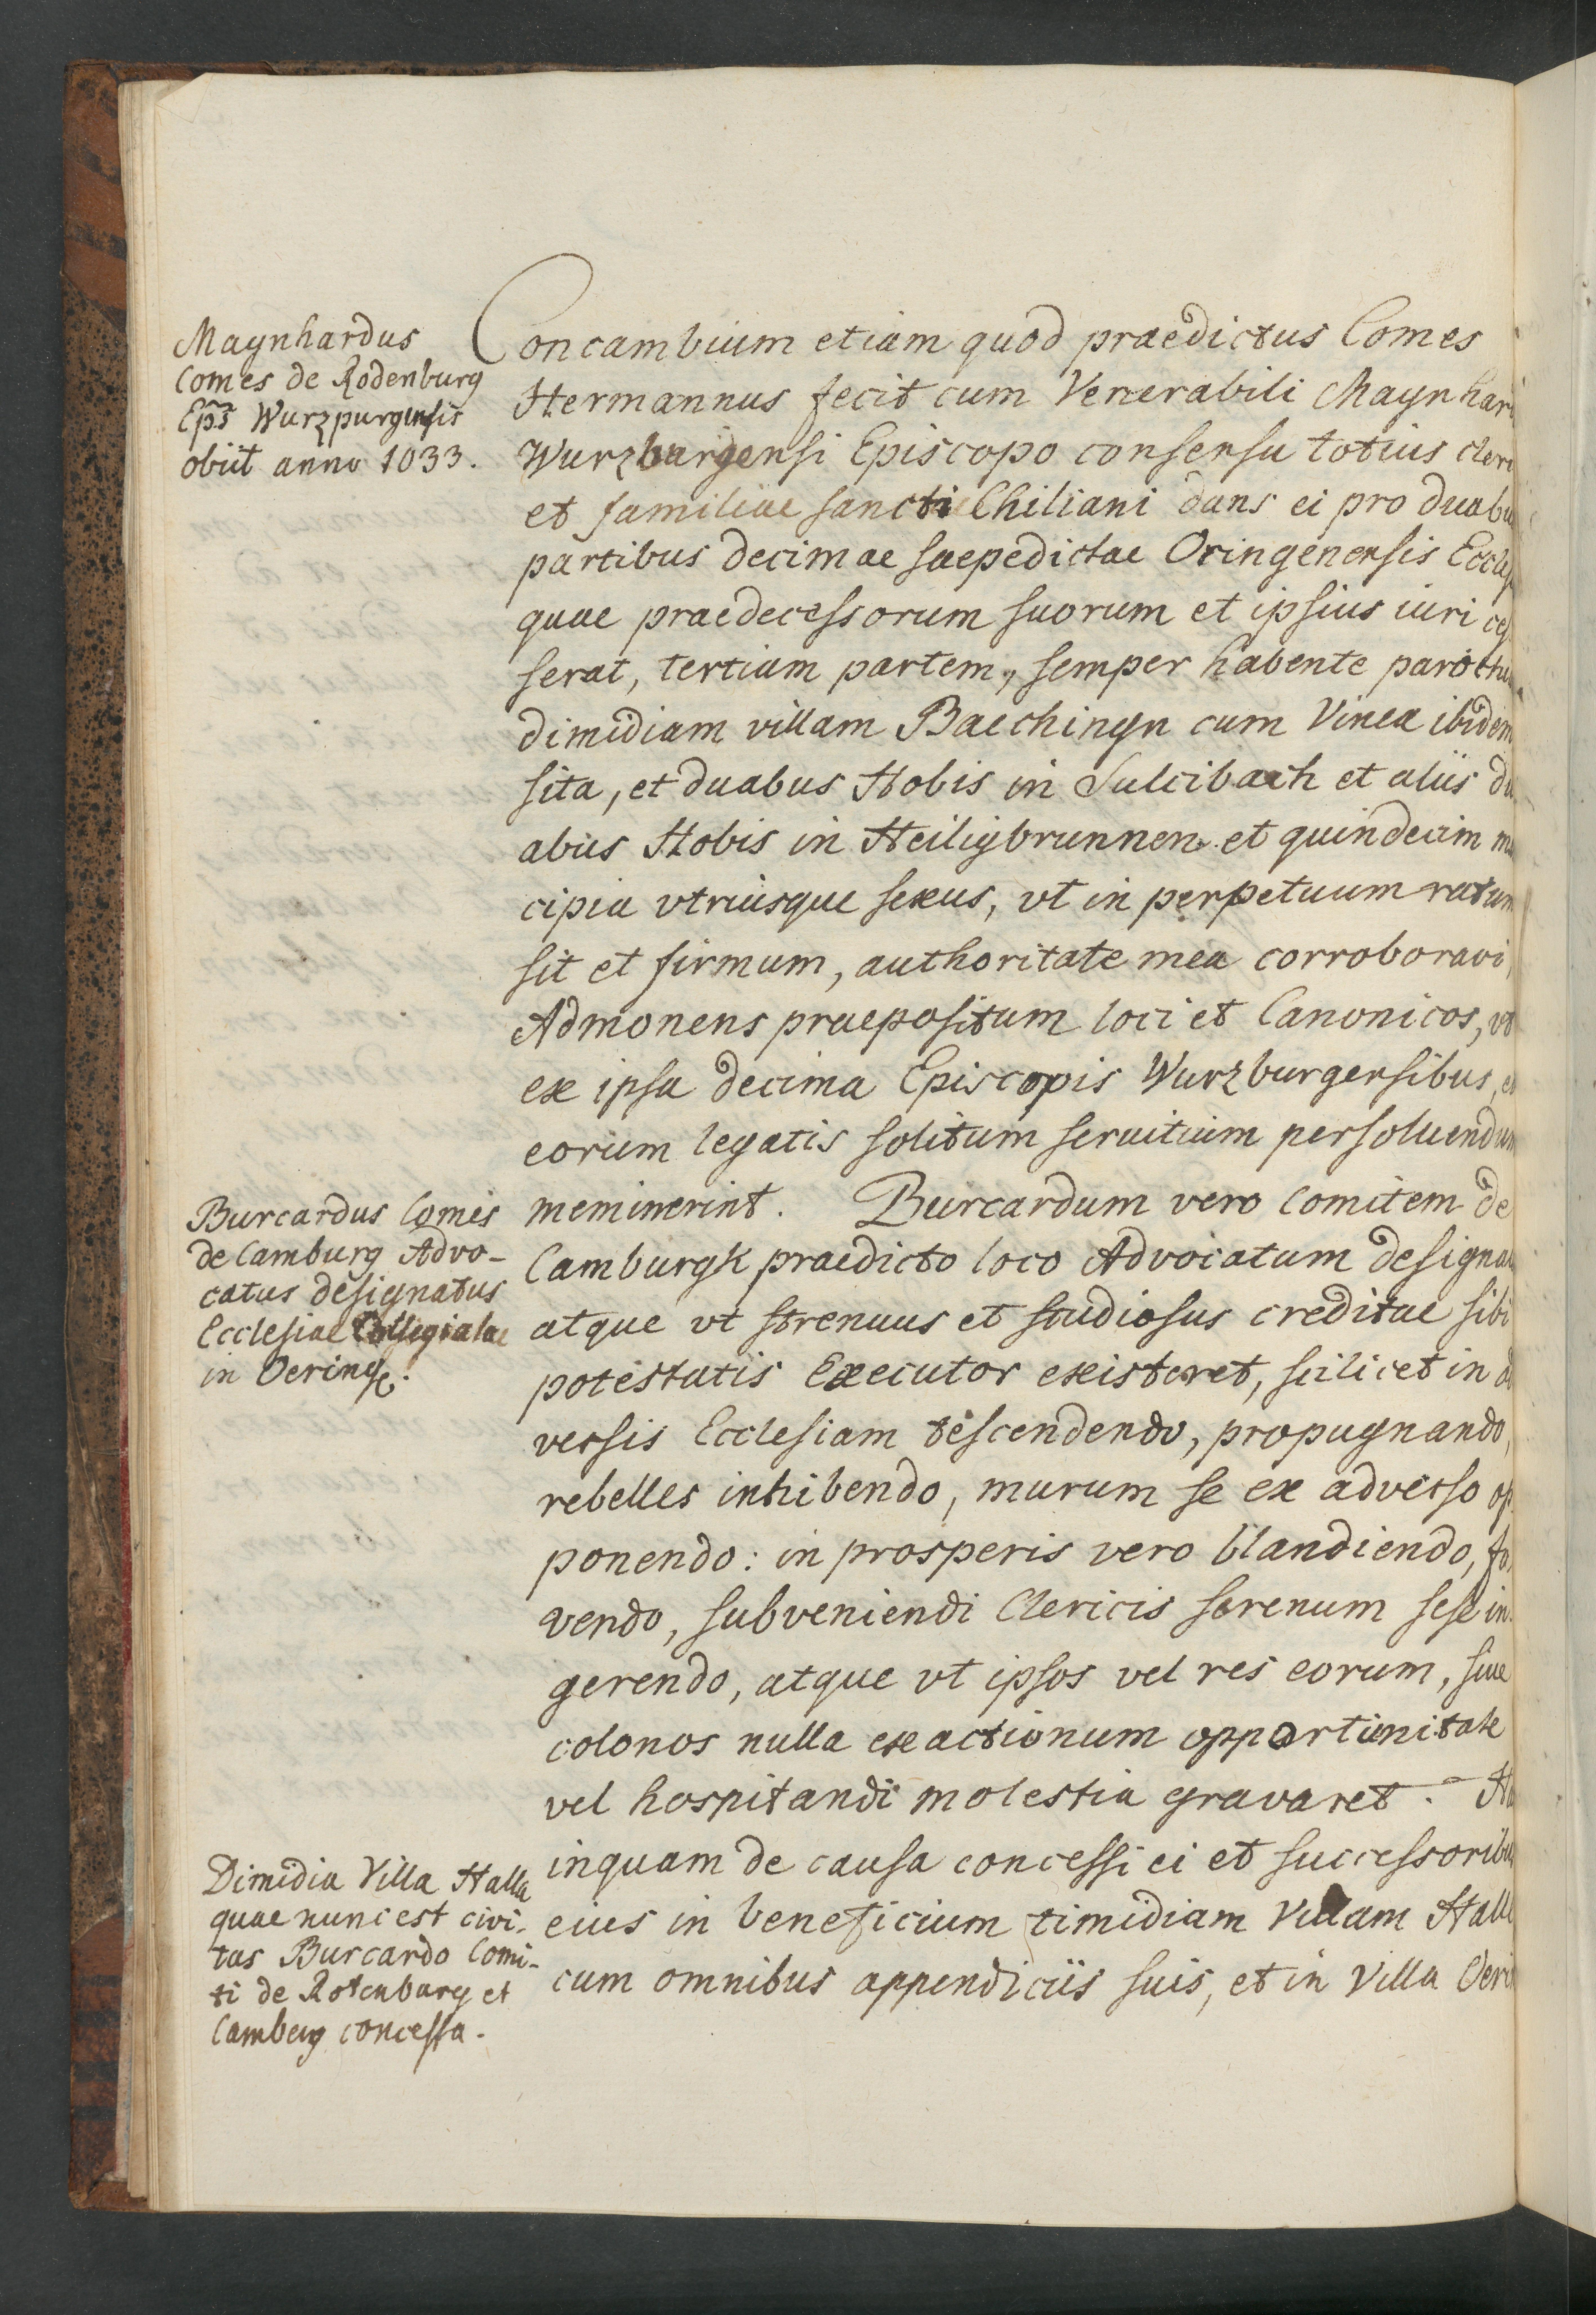 Maynhardus
Comes de Rodenburg
Eps̃ Wurzpurgensis
obiit anno 1033.
Concambium etiam quod praedictus Comes
Hermannus fecit cum Venerabili Maynhar
Wurzburgensi Episcopo consensu totius cleri
et familiae sancti Chiliani dans ei pro duabu
partibus decimae saepedictae Oringenensis Eccles
quae praedecessorum suorum et ipsius iuri ces
serat, tertiam partem, semper habente parochu
dimidiam villam Baechingn cum Vinea ibidem
sita, et duabus Hobis in Sulcibach et aliis du
abus Hobis in Heiligbrunnen et quindecim ma
cipia vtriusque sexus, vt in perpetuum ratum
sit et firmum, authoritate mea corroboravi,
Admonens praepositum loci et Canonicos, vt
ex ipsa decima Episcopis Wurzburgensibus, et
eorum legatis solitum seruitium persoluendum
meminerint. Burcardum vero Comitem de
Camburgk praedicto loco Advocatum designa
atque vt strenuus et studiosus creditae sibi
potestatis Executor existeret, scilicet in ad
versis Ecclesiam descendendo, propugnando,
rebelles inhibendo, murum se ex adverso op
ponendo: in prosperis vero blandiendo, fo
vendo, subveniendi Clericis serenum sese in
gerendo, atque vt ipsos vel res eorum, siue
colonos nulla exactionum opportunitate
vel hospitandi molestia gravaret. Ha
inquam de causa concessi ei et successoribu
eius in beneficium timidiam Villam Halle
cum omnibus appendiciis suis, et in Villa Oeri
Burcardus Comes
de Camburg Advo-
catus designatus
Ecclesiae Collegiatae
in Oeringe.
Dimidia Villa Halla
quae nunc est civi-
tas Burcardo Comi-
ti de Rotenburg et
Camberg concessa.